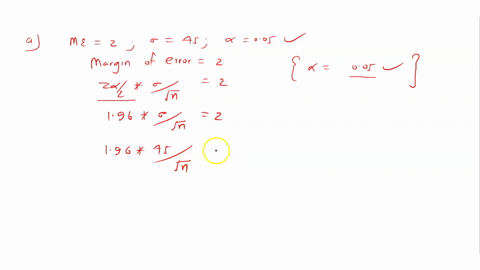 a) ME = 2 ; σ = 45 ; α = 0.05 ✓
Margin of error = 2
{ α = 0.05 ✓ }
zα/2 * σ/√n = 2
1.96 * σ/√n = 2
1.96 * 45/√n